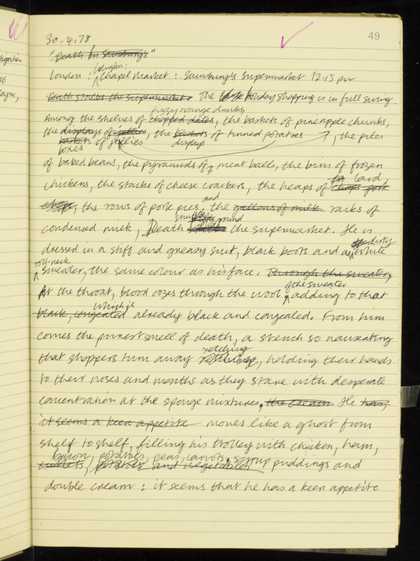 49
30.4.78
"Death in Sainsburys"
London: Islington: Chapel Market: Sainsburys Supermarket 12.15 pm
Death stalks the supermarket. The holiday shopping is in full swing.
Among the shelves of chopped dates, the baskets of pineapple chunks,
juicy orange chunks
the displays of jellies, the baskets of tinned potatoes, the piles
boxes of jellies display
of baked beans, the pyramids of meat balls, the bins of frozen
chickens, the stacks of cheese crackers, the heaps of lard,
chops, the rows of pork pies, and the racks of
condensed milk, Death around the supermarket. He is
dressed in a stiff and greasy suit, black boots and a white
polo-neck
sweater, the same colour as his face. Through the sweater,
At the throat, blood oozes through the wool of the sweater, adding to that
black, congealed which is already black and congealed. From him
comes the purest smell of death, a stench so nauseating
that shoppers turn away retching, holding their hands
to their noses and mouths as they stare with desperate
concentration at the sponge mixtures, the cream. He
it seems a keen appetite moves like a ghost from
shelf to shelf, filling his trolley with chicken, ham,
bacon, potatoes, peas, carrots, syrup puddings and
potatoes and vegetables
double cream: it seems that he has a keen appetite